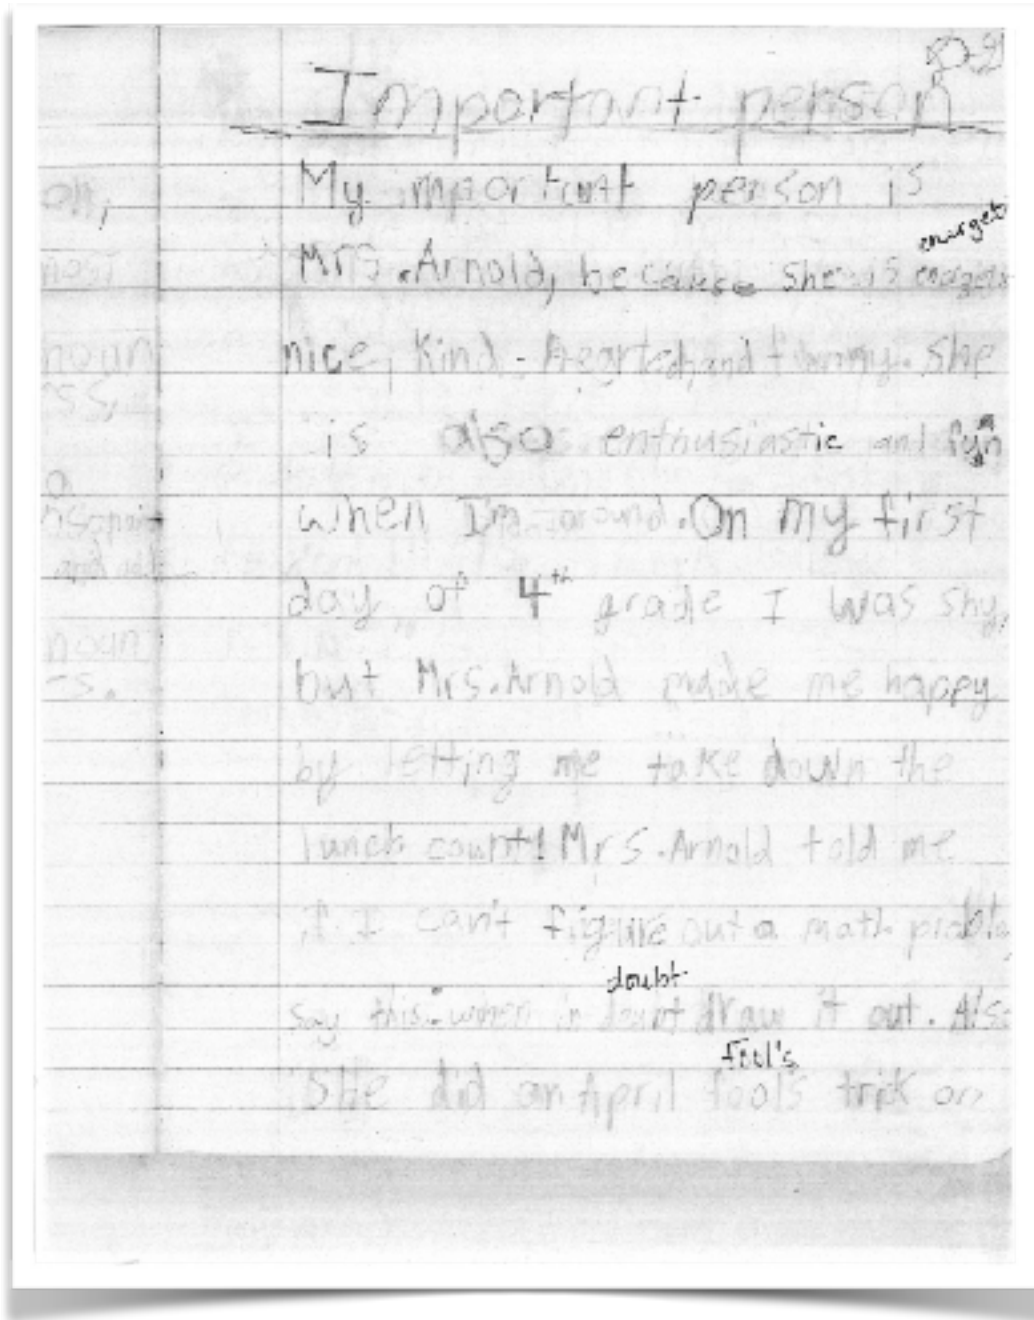 Important person
My important person is
energet
Mrs. Arnold, because she is energet
nice, kind-hearted, and funny. She
is also enthusiastic and fun
when I'm around. On my first
day of 4th grade I was shy,
but Mrs. Arnold made me happy
by letting me take down the
lunch count! Mrs. Arnold told me
if I can't figure out a math proble
doubt
say this: when in doubt draw it out. Also
fool's
She did an April fools trick on
on,
noun
ss,
a
and
noun
-s.